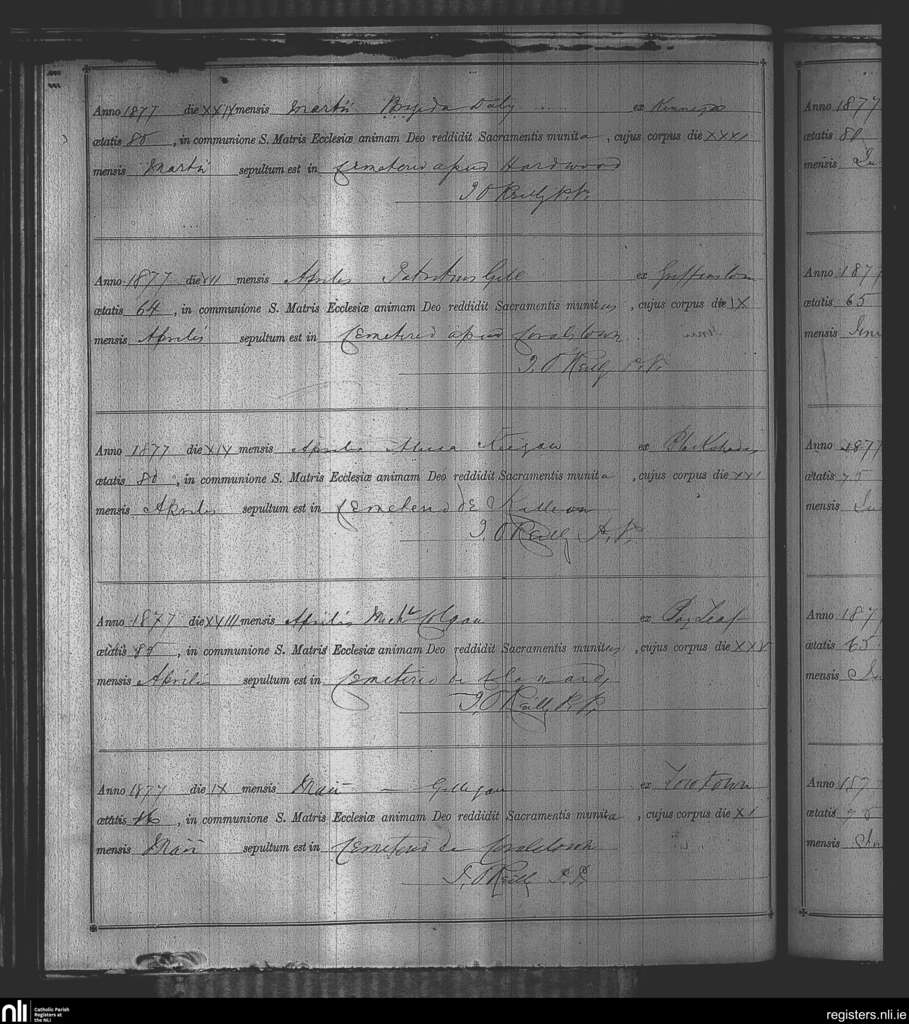 Anno 1877 die XXIX mensis Martii Brigida Daly ex
ætatis 85, in communione S. Matris Ecclesiæ animam Deo reddidit Sacramentis munita, cujus corpus die XXXI
mensis Martii sepultum est in Cemeterio apud Hardwood
J. O'Reilly P.P.
Anno 1877 die VII mensis Aprilis Patritius Gill ex Griffinstown
ætatis 64, in communione S. Matris Ecclesiæ animam Deo reddidit Sacramentis munitus, cujus corpus die IX
mensis Aprilis sepultum est in Cemeterio apud Coralstown
J. O'Reilly P.P.
Anno 1877 die XIX mensis Aprilis Keegan ex
ætatis 80, in communione S. Matris Ecclesiæ animam Deo reddidit Sacramentis munita, cujus corpus die XXI
mensis Aprilis sepultum est in Cemeterio de Killeen
J. O'Reilly P.P.
Anno 1877 die XXIII mensis Aprilis Michl ex
ætatis 85, in communione S. Matris Ecclesiæ animam Deo reddidit Sacramentis munitus, cujus corpus die XXV
mensis Aprilis sepultum est in Cemeterio de
J. O'Reilly P.P.
Anno 1877 die IX mensis Maii — Gilligan ex
ætatis, in communione S. Matris Ecclesiæ animam Deo reddidit Sacramentis munita, cujus corpus die XI
mensis Maii sepultum est in Cemeterio de Coralstown
J. O'Reilly P.P.
Anno 1877
ætatis 80
mensis
Anno 1877
ætatis 65
mensis
Anno 1877
ætatis 75
mensis
Anno 187
ætatis 65
mensis
Anno 187
ætatis
mensis
nli
Catholic Parish
Registers at
the NLI
registers.nli.ie